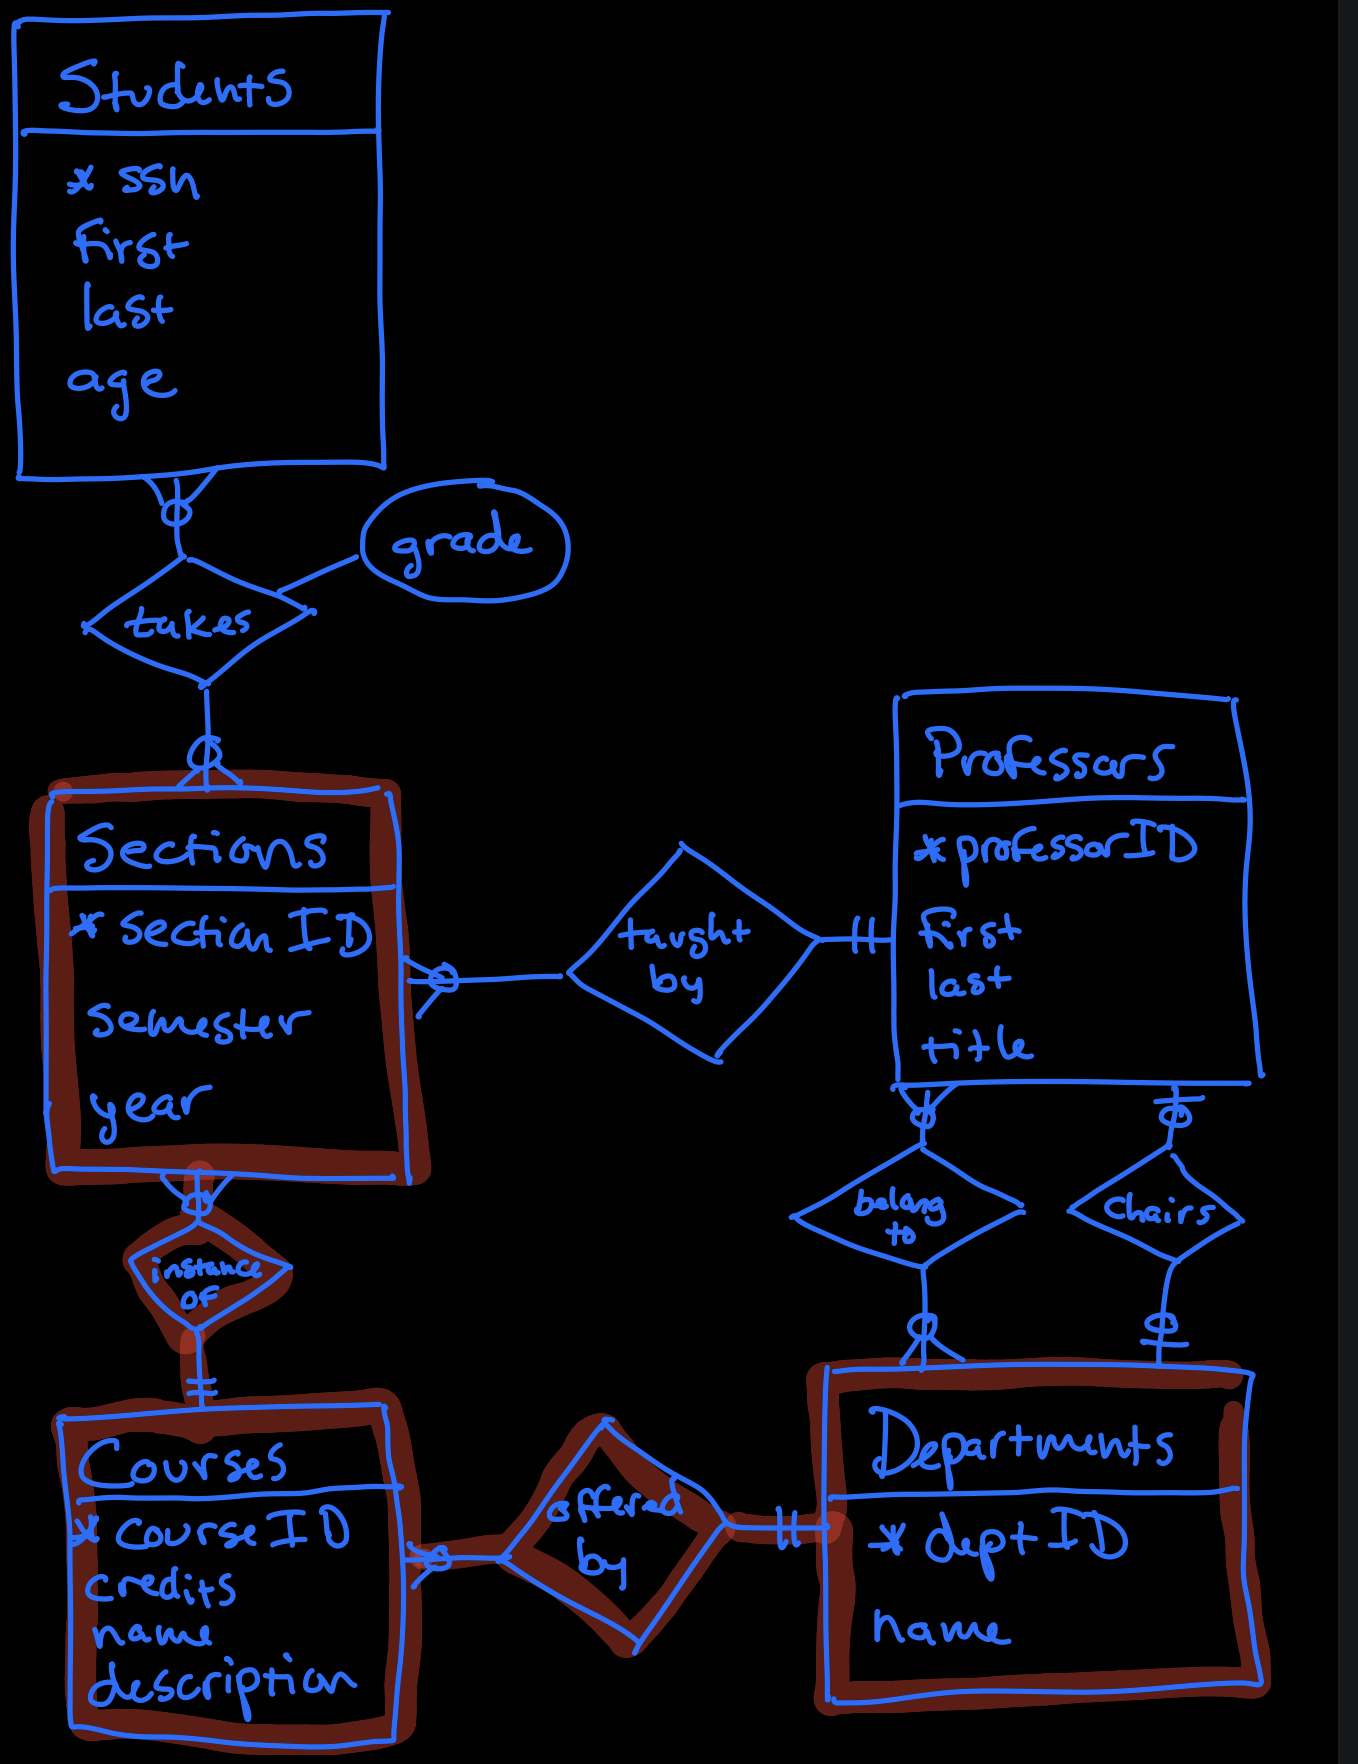 Students
* ssn
first
last
age
grade
takes
Sections
* section ID
semester
year
taught
by
Professors
* professorID
first
last
title
belong
to
Chairs
instance
of
Courses
* courseID
credits
name
description
offered
by
Departments
* deptID
name